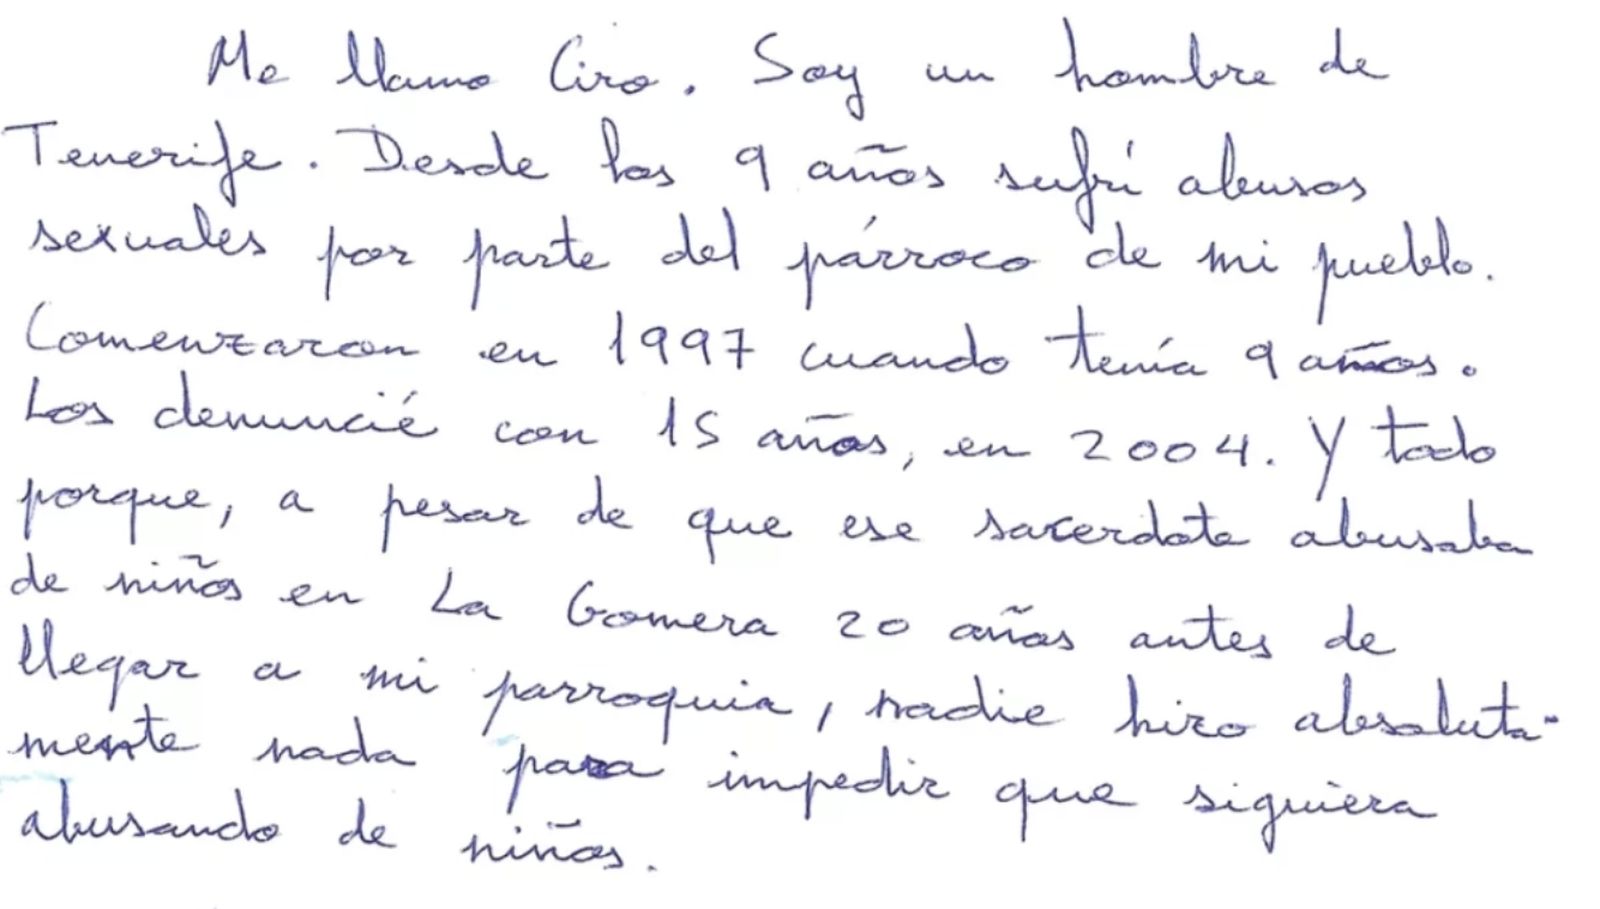 Me llamo Ciro. Soy un hombre de
Tenerife. Desde los 9 años sufrí abusos
sexuales por parte del párroco de mi pueblo.
Comenzaron en 1997 cuando tenía 9 años.
Los denuncié con 15 años, en 2004. Y todo
porque, a pesar de que ese sacerdote abusaba
de niños en La Gomera 20 años antes de
llegar a mi parroquia, nadie hizo absoluta-
mente nada para impedir que siguiera
abusando de niños.